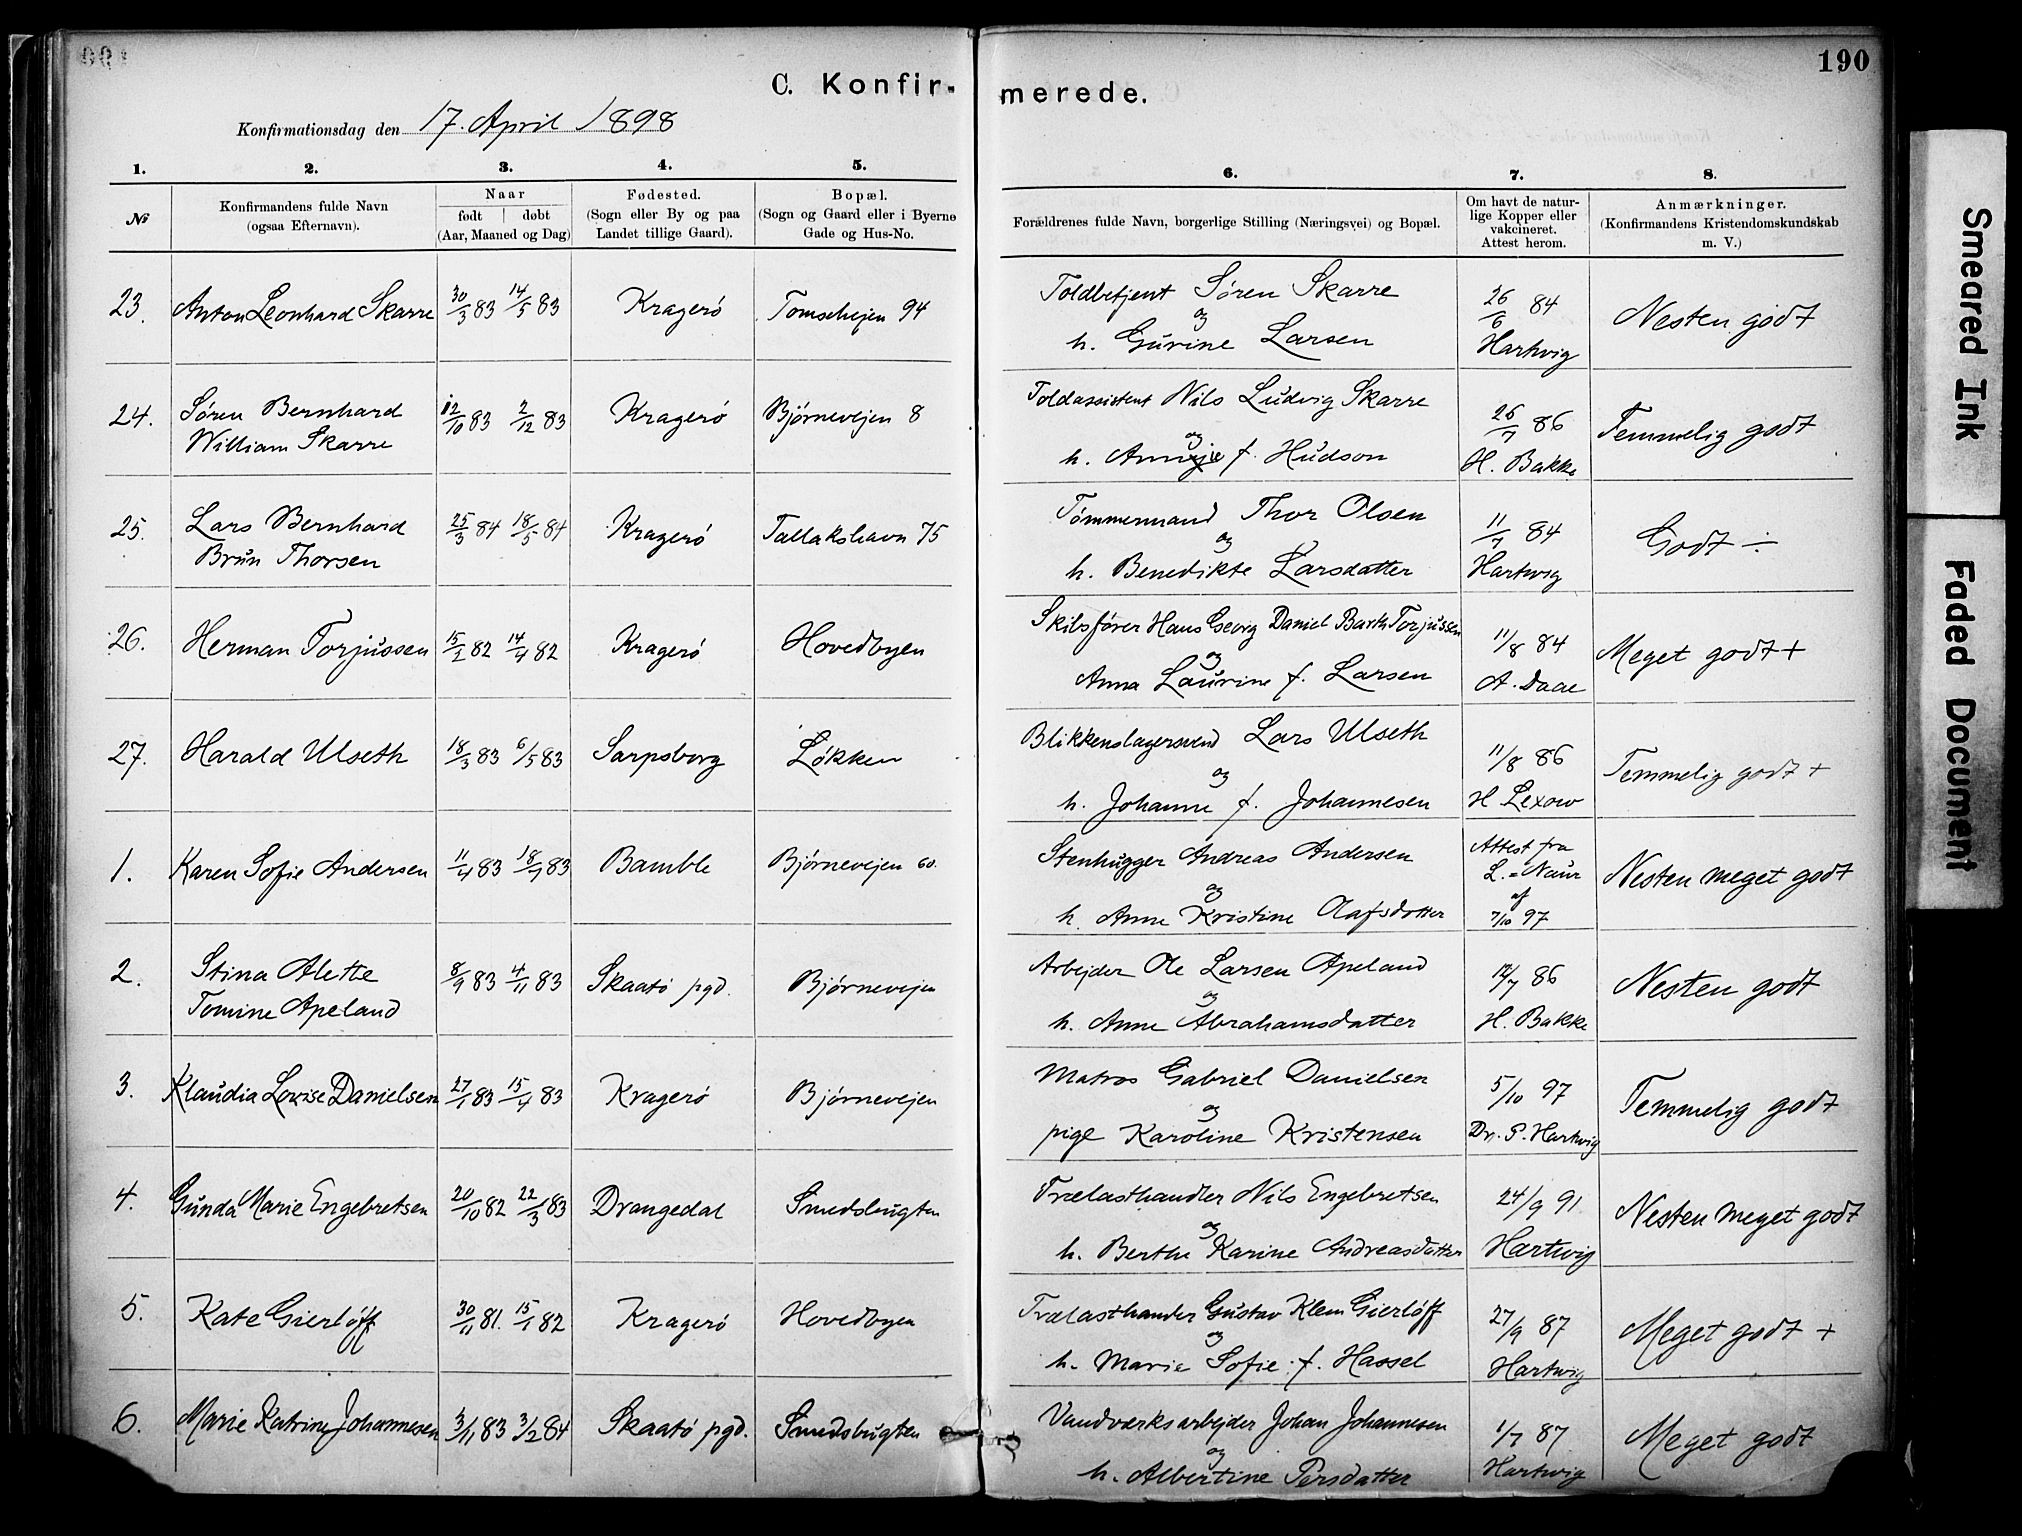 190
C. Konfir-
merede.
Konfirmationsdag den 17. April 1898
1. 2. 3. 4. 5. 6. 7. 8.
№
Konfirmandens fulde Navn
(ogsaa Efternavn).
Naar
født | døbt
(Aar, Maaned og Dag)
Fødested.
(Sogn eller By og paa
Landet tillige Gaard).
Bopæl.
(Sogn og Gaard eller i Byerne
Gade og Hus-No.
Forældrenes fulde Navn, borgerlige Stilling (Næringsvei) og Bopæl.
Om havt de natur-
lige Kopper eller
vakcineret.
Attest herom.
Anmærkninger.
(Konfirmandens Kristendomskundskab
m. V.)
23. Anton Leonhard Skarre 30/3 83 14/5 83 Kragerø Tomsehejen 94
Toldbetjent Søren Skarre
og
h. Gurine Larsen
26/6 84
Hartvig
Nesten godt
24. Søren Bernhard
William Skarre
12/10 83 2/12 83 Kragerø Bjørnevejen 8
Toldassistent Nils Ludvig Skarre
og
h. f. Hudson
26/7 86
H. Bakke
Temmelig godt
25. Lars Bernhard
Brun Thorsen
25/3 84 18/5 84 Kragerø Tallakshavn 75
Tømmermand Thor Olsen
og
h. Benedikte Larsdatter
11/7 84
Hartvig
Godt ÷
26. Herman Torjussen 15/2 82 14/4 82 Kragerø Hovedbyen
Skibsfører Hans Georg Daniel Barth Torjussen
og
Anna Laurine f. Larsen
11/8 84
A. Daae
Meget godt +
27. Harald Ulseth 18/3 83 6/5 83 Sarpsborg Løkken
Blikkenslagersvend Lars Ulseth
og
h. Johanne f. Johannesen
11/8 86
H Lexow
Temmelig godt +
1. Karen Sofie Andersen 11/4 83 18/7 83 Bamble Bjørnevejen 60.
Stenhugger Andreas Andersen
og
h. Anne Kristine Olafsdatter
Attest fra
L. = Naur
af
7/10 97
Nesten meget godt
2. Stina Alette
Tomine Apeland
8/9 83 4/11 83 Skaatø pgd. Bjørnevejen
Arbejder Ole Larsen Apeland
og
h. Anne Abrahamsdatter
12/7 86
H. Bakke
Nesten godt
3. Klaudia Lovise Danielsen 27/1 83 15/4 83 Kragerø Bjørnevejen
Matros Gabriel Danielsen
og
pige Karoline Kristensen
5/10 97
Dr. P. Hartvig
Temmelig godt
4. Gunda Marie Engebretsen 20/10 82 22/3 83 Drangedal Smedsbugten
Trælasthandler Nils Engebretsen
og
h. Berthe Karine Andreasdatter
24/9 91
Hartvig
Nesten meget godt
5. Kate Gierløff 30/11 81. 15/1 82 Kragerø Hovedbyen
Trælasthander Gustav Klem Gierløff
og
h. Marie Sofie f. Hassel
27/9 87
Hartvig
Meget godt +
6. Marie Katrine Johannesen 3/11 83 3/2 84 Skaatø pgd. Smedsbugten
Vandværksarbejder Johan Johannesen
og
h. Albertine Persdatter
1/7 87
Hartvig
Meget godt
Smeared Ink
Faded Document